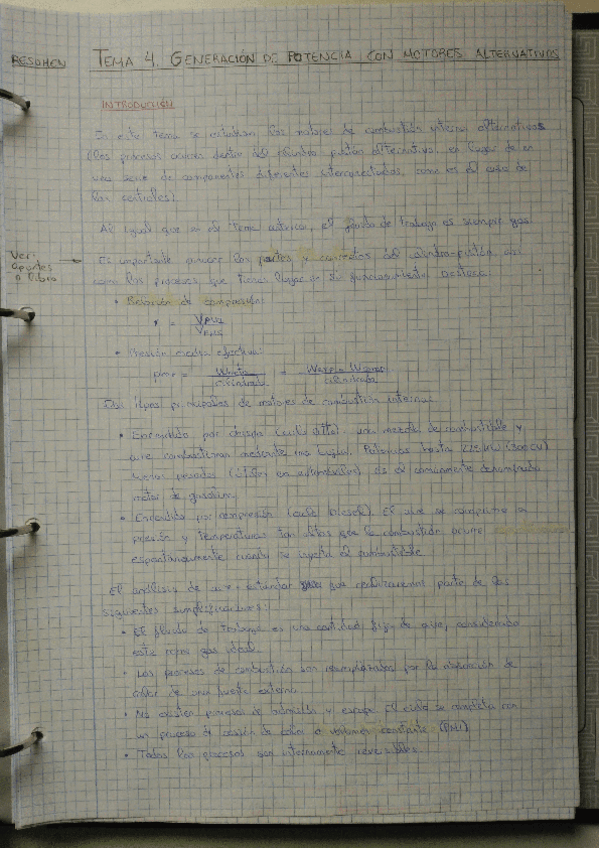 RESUMEN
TEMA 4. GENERACIÓN DE POTENCIA CON MOTORES ALTERNATIVOS
INTRODUCCIÓN
En este tema se estudian los motores de combustión interna alternativos
(los procesos ocurren dentro del cilindro pistón alternativo, en lugar de en
una serie de componentes diferentes interconectados, como es el caso de
las centrales)
Al igual que en el tema anterior, el fluido de trabajo es siempre gas
Ver apuntes o libro
Es importante conocer las partes y conceptos del cilindro-pistón, así
como los procesos que tienen lugar en su funcionamiento. Destaca:
• Relación de compresión:
r = 
• Presión media efectiva:
pme = Wneto / cilindrada = / cilindrada
Dos tipos principales de motores de combustión interna:
• Encendido por chispa (ciclo Otto), una mezcla de combustible y
aire combustiona mediante una bujía. Potencias hasta (300CV)
menos pesado (útiles en automóviles), es el comúnmente denominado
motor de gasolina.
• Encendido por compresión (ciclo Diesel). El aire se comprime a
presión y temperaturas tan altas que la combustión ocurre
espontáneamente cuando se inyecta el combustible.
El análisis de aire-estándar que realizaremos parte de las
siguientes simplificaciones:
• El fluido de trabajo es una cantidad fija de aire, considerado
este como gas ideal.
• Los procesos de combustión son reemplazados por la absorción de
calor de una fuente externa
• No existen procesos de admisión y escape. El ciclo se completa con
un proceso de cesión de calor a volumen constante (PMI)
• Todos los procesos son internamente reversibles.